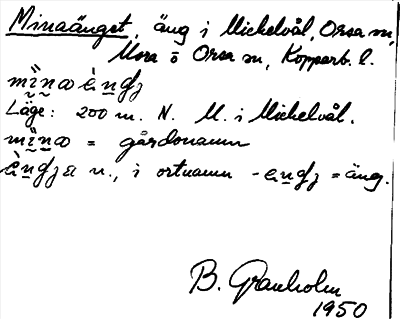 Minaänget, äng i Mickelvål, Orsa sn,
Mora o Orsa sn, Kopparb. l.
Läge: 200 m. N. M. i Mickelvål.
= gårdsnamn
n., i ortnamn = äng.
B. Granholm
1950